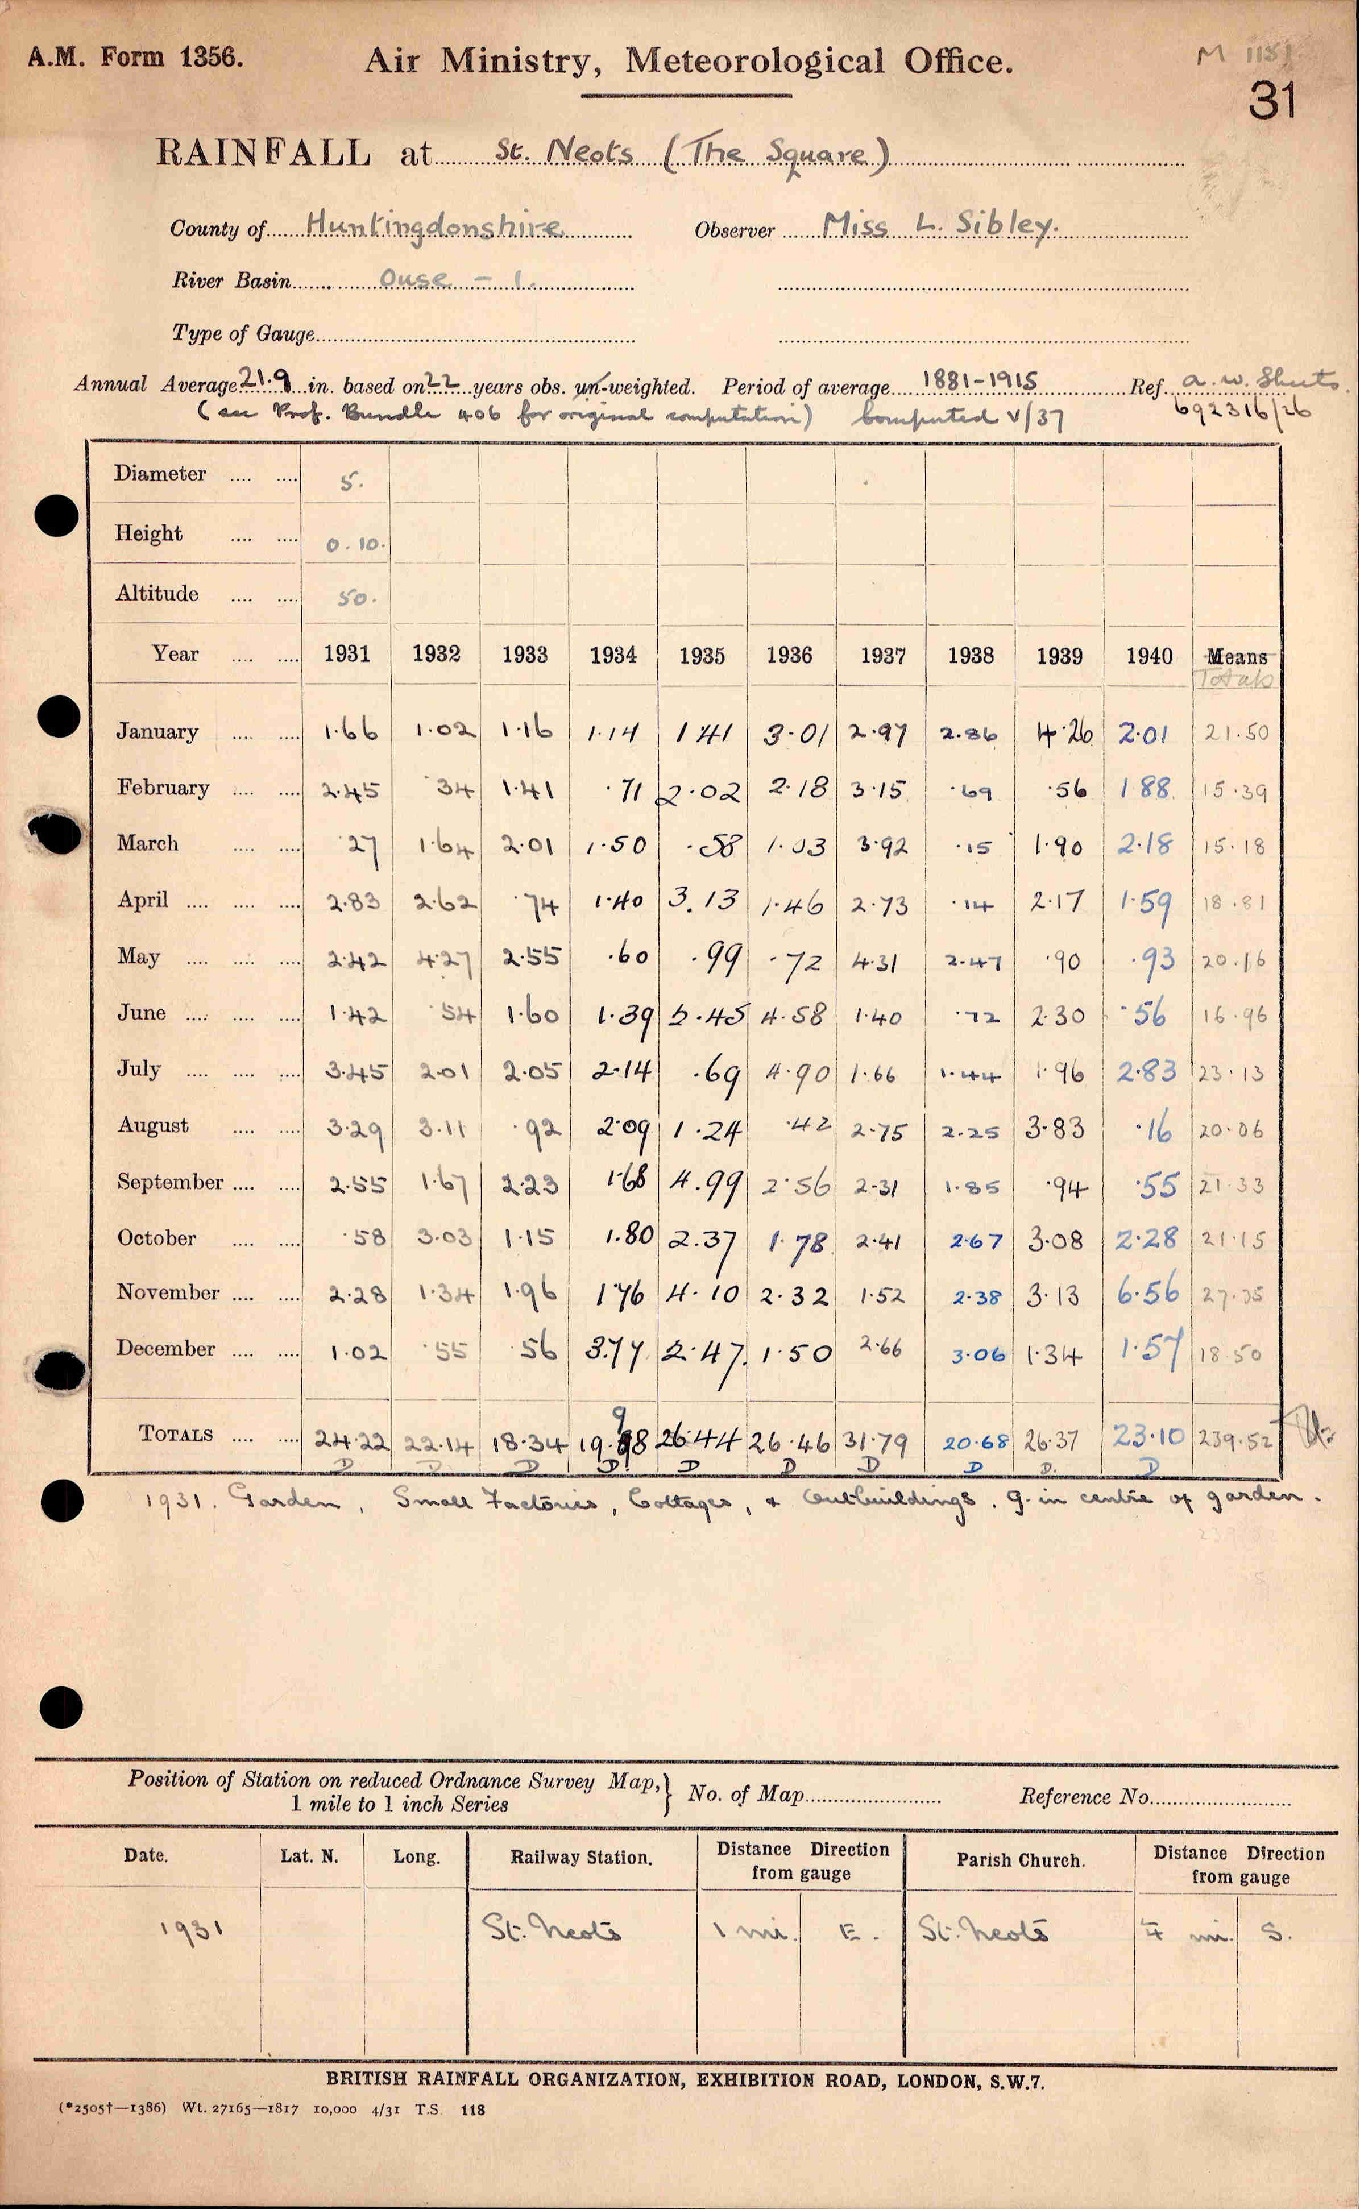 A.M. Form 1356.
Air Ministry, Meteorological Office.
31
RAINFALL at St. Neots (The Square)
County of Huntingdonshire Observer Miss L. Sibley.
River Basin Ouse - 1.
Type of Gauge
Annual Average 21.9 in. based on 22 years obs. un-weighted. Period of average 1881-1915 Ref. a.w. Sheets.
(see Prof. Bundle 406 for original computation) Computed V/37 692316/26
Diameter 5.
Height 0.10.
Altitude 50.
Year 1931 1932 1933 1934 1935 1936 1937 1938 1939 1940 Means
Totals
January 1.66 1.02 1.16 1.14 1.41 3.01 2.97 2.86 4.26 2.01 21.50
February 2.45 .34 1.41 .71 2.02 2.18 3.15 .69 .56 1.88 15.39
March .27 1.64 2.01 1.50 .58 1.03 3.92 .15 1.90 2.18 15.18
April 2.83 2.62 .74 1.40 3.13 1.46 2.73 .14 2.17 1.59 18.81
May 2.42 4.27 2.55 .60 .99 .72 4.31 2.47 .90 .93 20.16
June 1.42 .54 1.60 1.39 2.45 4.58 1.40 .72 2.30 .56 16.96
July 3.45 2.01 2.05 2.14 .69 4.90 1.66 1.44 1.96 2.83 23.13
August 3.29 3.11 .92 2.09 1.24 .42 2.75 2.25 3.83 .16 20.06
September 2.55 1.67 2.23 1.68 4.99 2.56 2.31 1.85 .94 .55 21.33
October .58 3.03 1.15 1.80 2.37 1.78 2.41 2.67 3.08 2.28 21.15
November 2.28 1.34 1.96 1.76 4.10 2.32 1.52 2.38 3.13 6.56 27.35
December 1.02 .55 .56 3.77 2.47 1.50 2.66 3.06 1.34 1.57 18.50
TOTALS 24.22 22.14 18.34 19.98 26.44 26.46 31.79 20.68 26.37 23.10 239.52
D D D D. D D D D D. D
1931. Garden, Small Factories, Cottages, & Outbuildings. G. in centre of garden.
Position of Station on reduced Ordnance Survey Map, } No. of Map Reference No.
1 mile to 1 inch Series
Date. Lat. N. Long. Railway Station. Distance Direction from gauge Parish Church. Distance Direction from gauge
1931 St. Neots 1 mi. E. St. Neots ¼ mi. S.
BRITISH RAINFALL ORGANIZATION, EXHIBITION ROAD, LONDON, S.W.7.
(*2505†—1386) Wt. 27165—1817 10,000 4/31 T.S. 118